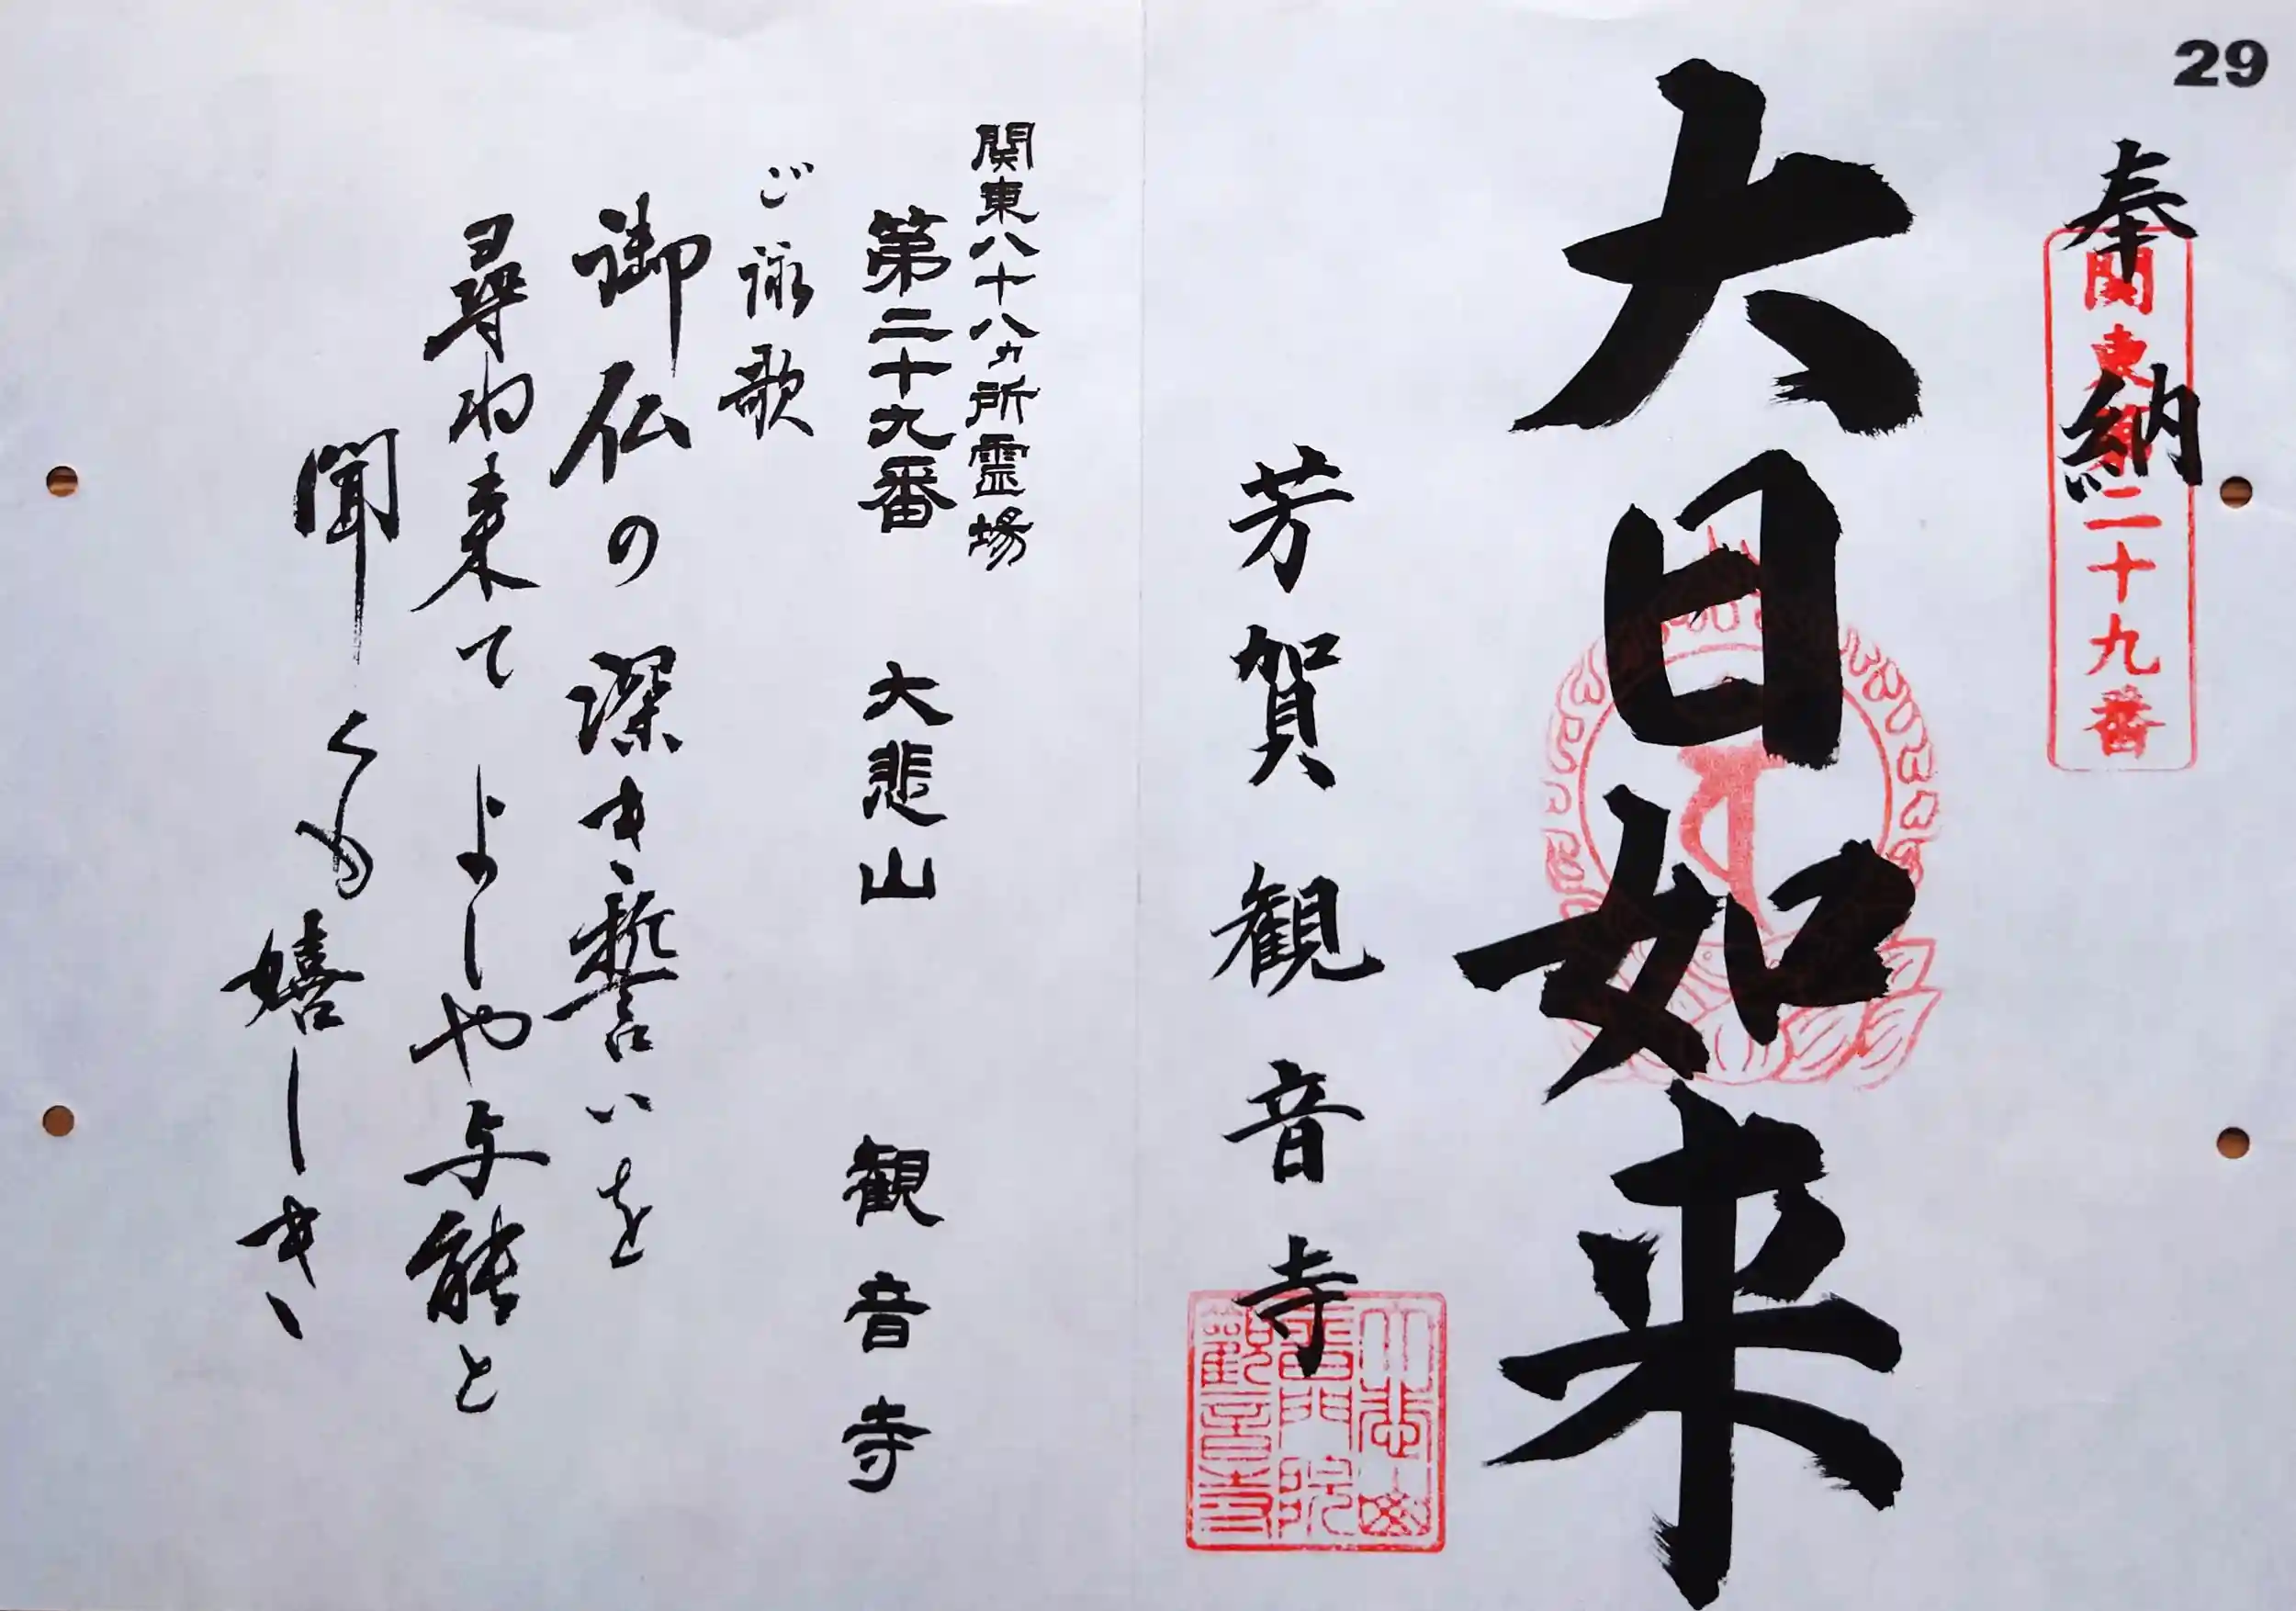 29
奉納
関東第二十九番
大日如来
芳賀観音寺
関東八十八ヵ所霊場
第二十九番 大悲山 観音寺
ご詠歌
御仏の 深き誓いを
尋ね来て よしや与能と
聞くも嬉しき